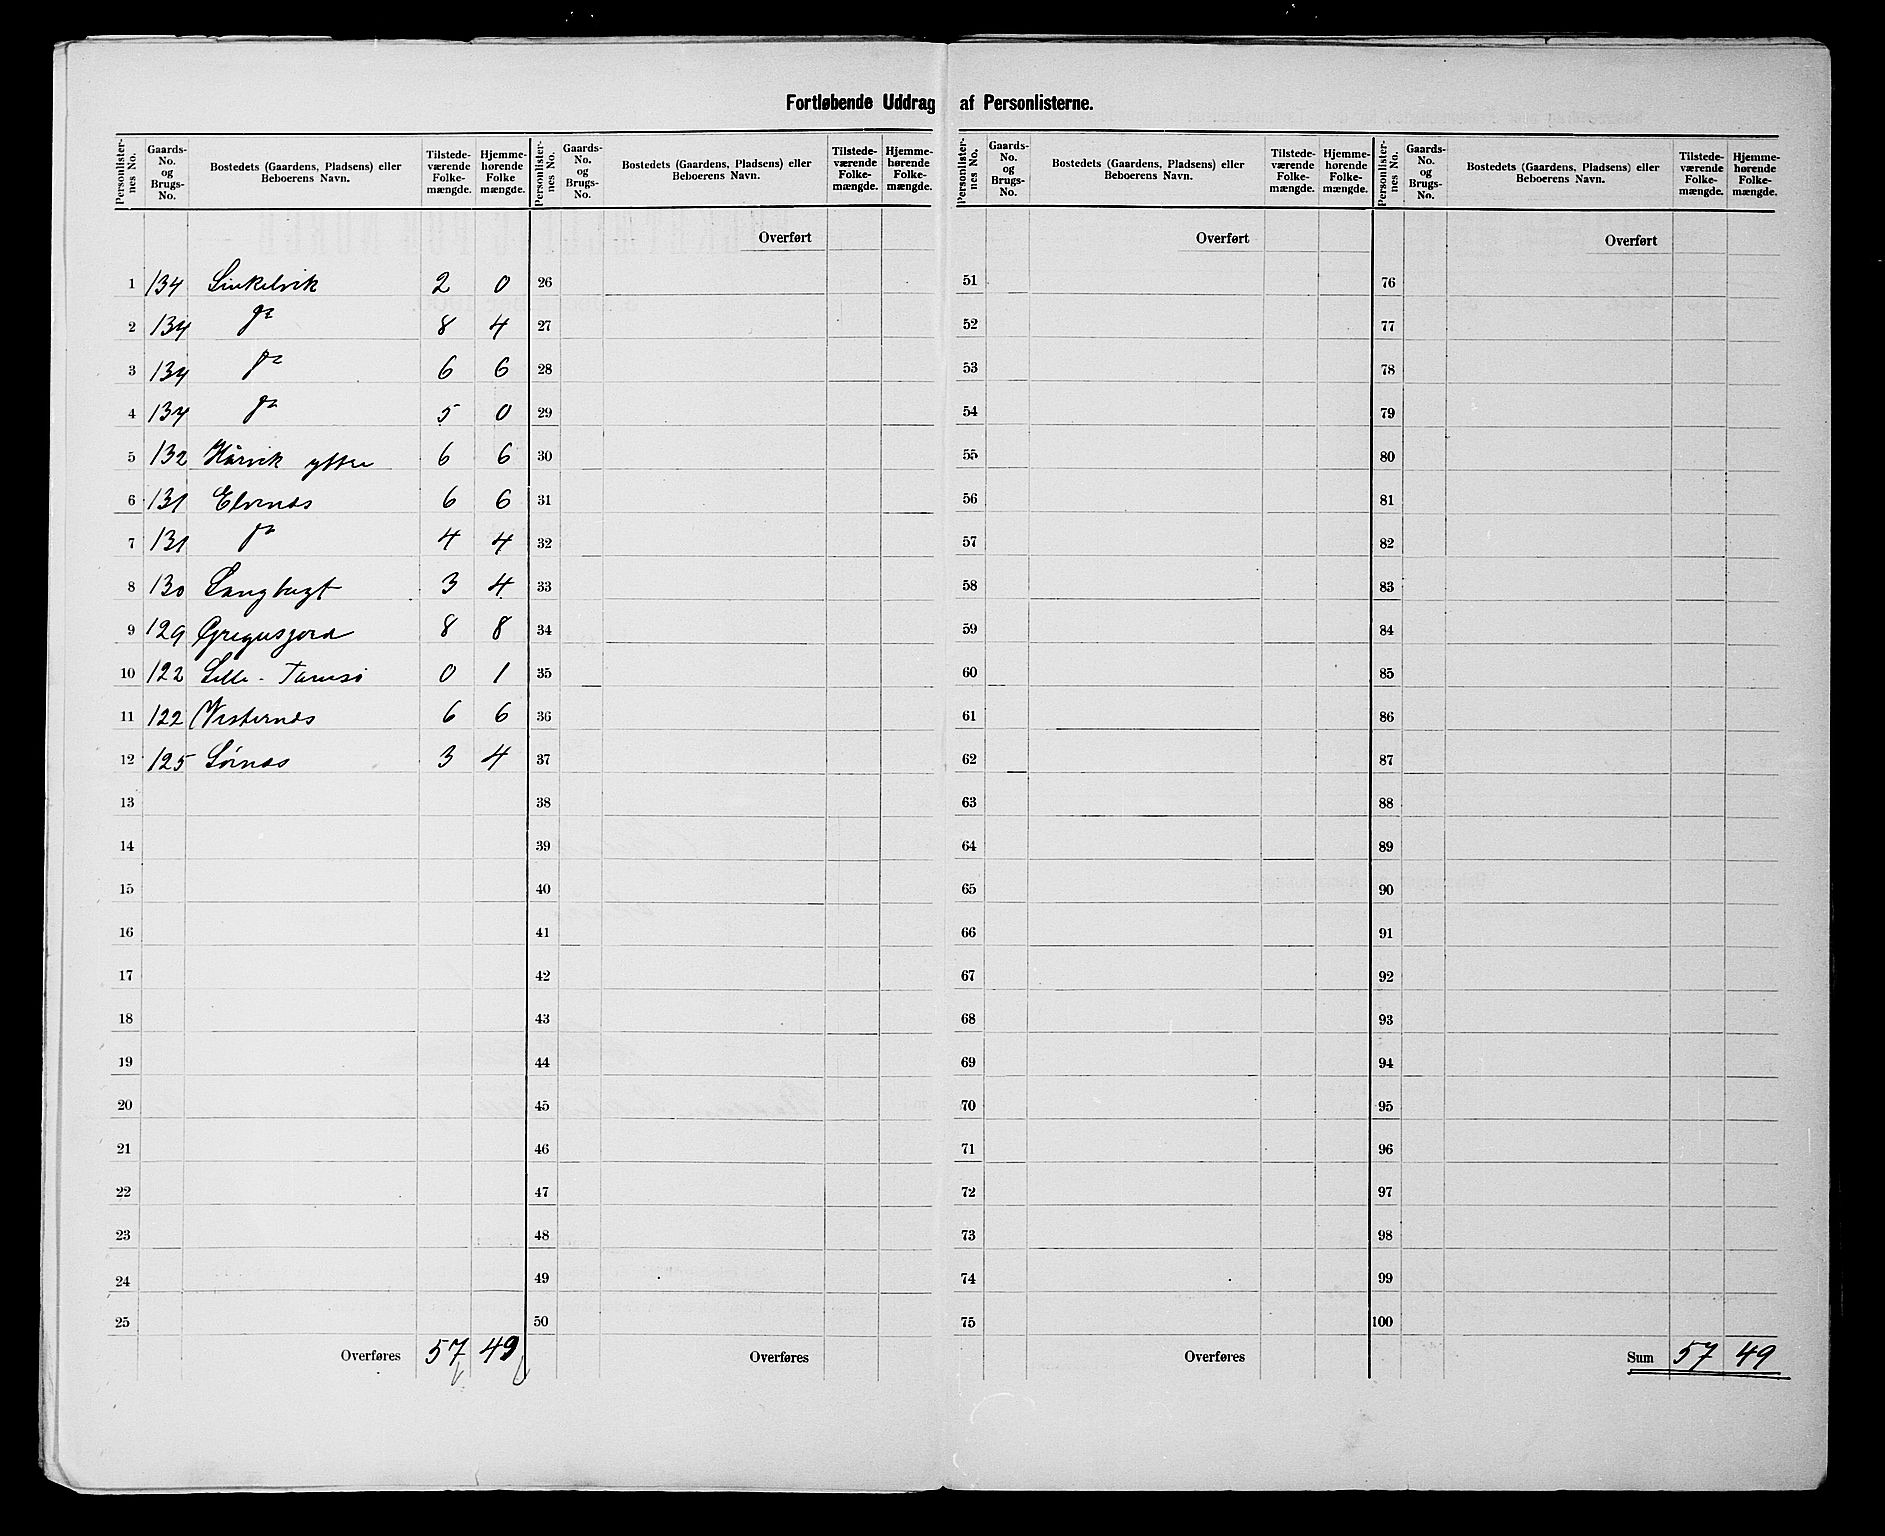 Fortløbende Uddrag af Personlisterne.
Personlister-nes No. Gaards-No. og Brugs-No. Bostedets (Gaardens, Pladsens) eller Beboerens Navn. Tilstede-værende Folke-mængde. Hjemme-hørende Folke mængde. Personlister-nes No. Gaards-No. og Brugs-No. Bostedets (Gaardens, Pladsens) eller Beboerens Navn. Tilstede-værende Folke-mængde. Hjemme-hørende Folke-mængde. Personlister-nes No. Gaards-No. og Brugs-No. Bostedets (Gaardens, Pladsens) eller Beboerens Navn. Tilstede-værende Folke-mængde. Hjemme-hørende Folke-mængde. Personlister-nes No. Gaards-No. og Brugs-No. Bostedets (Gaardens, Pladsens) eller Beboerens Navn. Tilstede-værende Folke-mængde. Hjemme-hørende Folke-mængde.
Overført Overført Overført
1 134 Sinkelvik 2 0 26 51 76
2 134 8 4 27 52 77
3 134 6 6 28 53 78
4 134 5 0 29 54 79
5 132 Hårvik yttre 6 6 30 55 80
6 131 Elvenas 6 6 31 56 81
7 131 4 4 32 57 82
8 130 Langbugt 3 4 33 58 83
9 129 Gregusjord 8 8 34 59 84
10 122 Lille- 0 1 35 60 85
11 122 Vesternas 6 6 36 61 86
12 125 Sørnas 3 4 37 62 87
13 38 63 88
14 39 64 89
15 40 65 90
16 41 66 91
17 42 67 92
18 43 68 93
19 44 69 94
20 45 70 95
21 46 71 96
22 47 72 97
23 48 73 98
24 49 74 99
25 50 75 100
Overføres 57 49 Overføres Overføres Sum 57 49